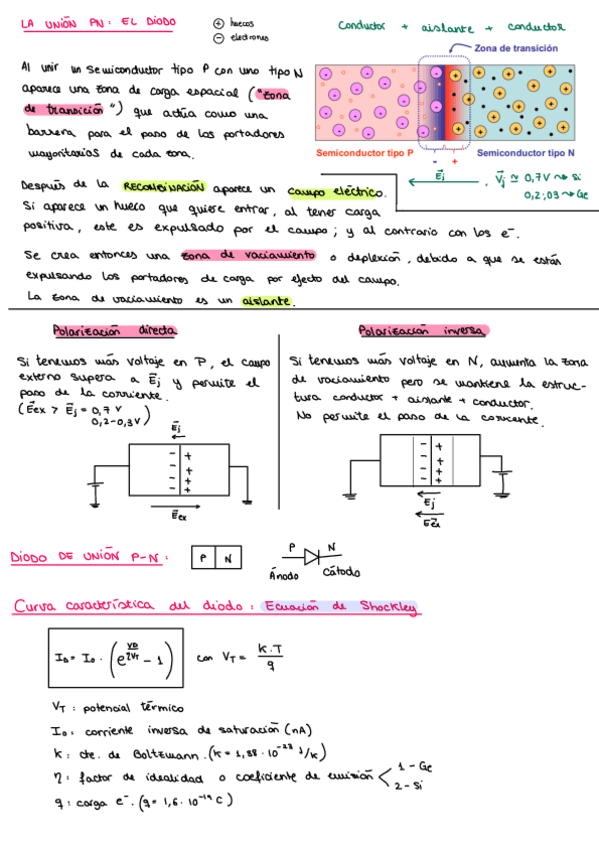 LA UNIÓN PN: EL DIODO
⊕ huecos
⊖ electrones
Conductor + aislante + conductor
Zona de transición
Al unir un semiconductor tipo P con uno tipo N
aparece una zona de carga espacial ("zona
de transición") que actúa como una
barrera para el paso de los portadores
mayoritarios de cada zona.
Semiconductor tipo P
- +
Semiconductor tipo N
Ej , Vj ≃ 0,7V → Si
0,2;03 → Ge
Después de la RECOMBINACIÓN aparece un campo eléctrico.
Si aparece un hueco que quiere entrar, al tener carga
positiva, este es expulsado por el campo; y al contrario con los e⁻.
Se crea entonces una zona de vaciamiento o deplexión, debido a que se están
expulsando los portadores de carga por efecto del campo.
La zona de vaciamiento es un aislante.
Polarización directa
Si tenemos más voltaje en P, el campo
externo supera a Ej y permite el
paso de la corriente.
(Eex > Ej = 0,7 V
0,2-0,3V)
Ej
- +
- +
- +
- +
Eex
Polarización inversa
Si tenemos más voltaje en N, aumenta la zona
de vaciamiento pero se mantiene la estruc-
tura conductor + aislante + conductor.
No permite el paso de la corriente.
- +
- +
- +
- +
Ej
Eex
DIODO DE UNIÓN P-N:
P N
P N
Ánodo Cátodo
Curva característica del diodo: Ecuación de Shockley
I_D = I_0 · (e^(VD/ηVT) - 1) con V_T = K.T/q
V_T: potencial térmico
I_0: corriente inversa de saturación (nA)
K: cte. de Boltzmann. (K = 1,38 · 10⁻²³ J/K)
η: factor de idealidad o coeficiente de emisión < 1 - Ge
2 - Si
q: carga e⁻. (q = 1,6 · 10⁻¹⁹ C)